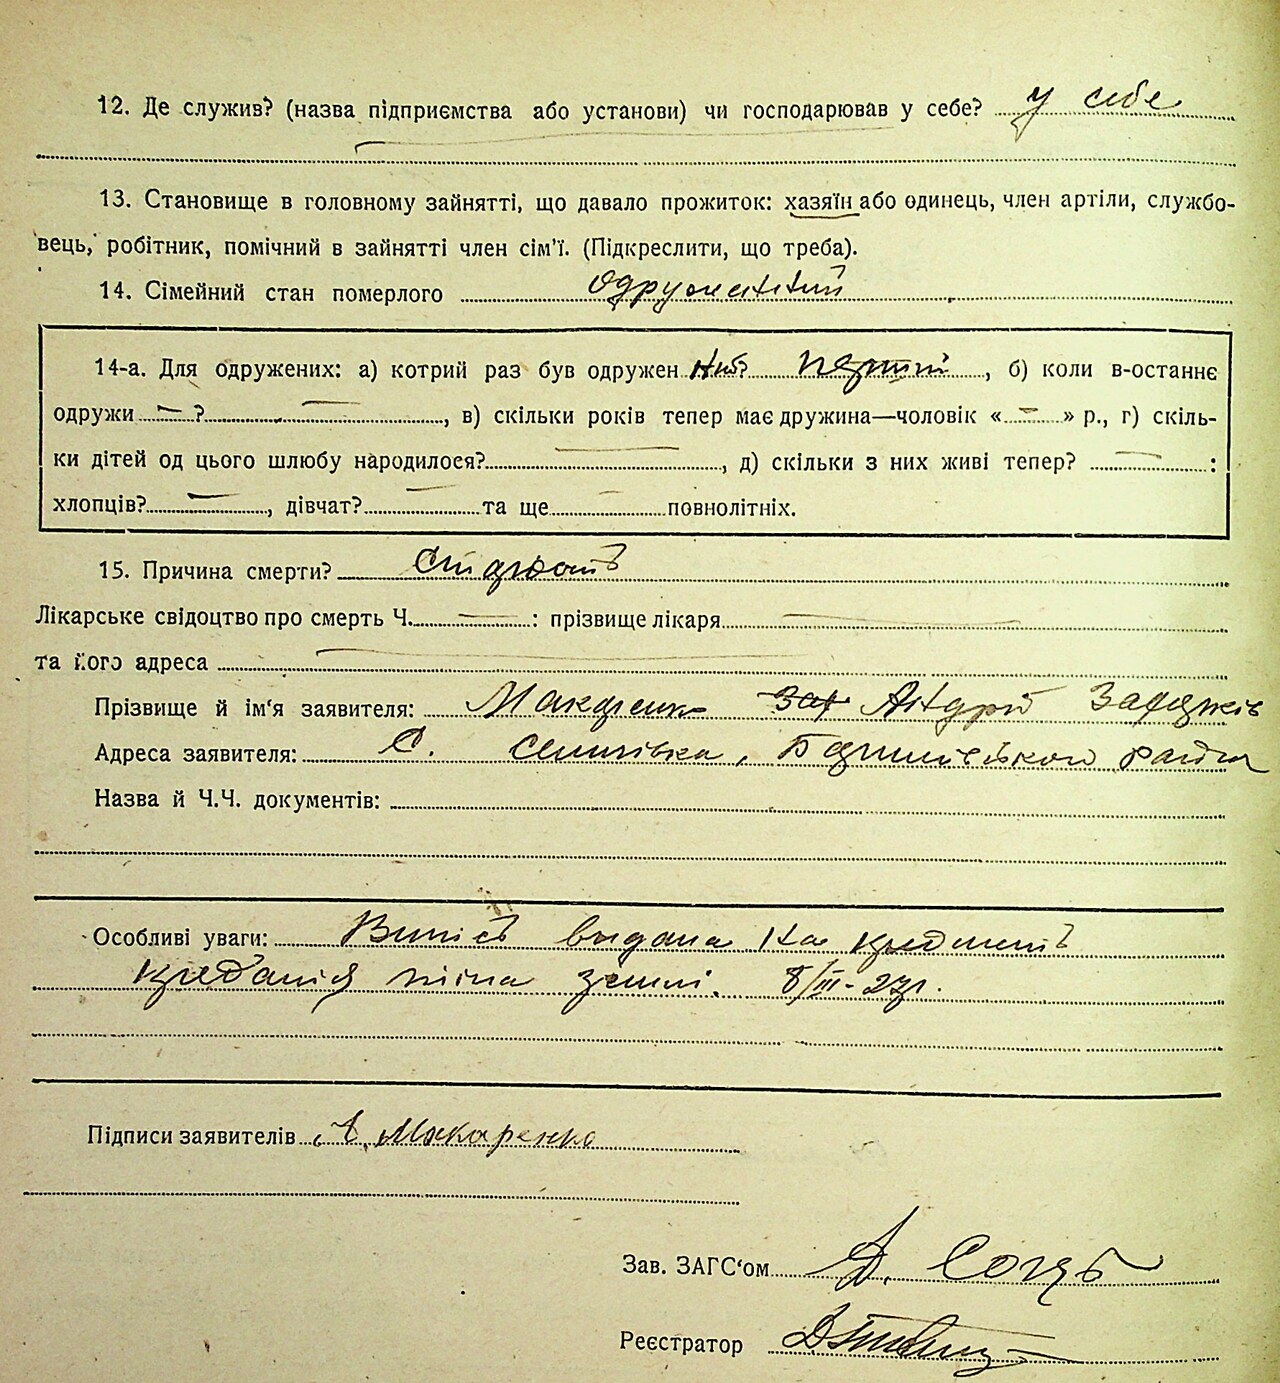 12. Де служив? (назва підприємства або установи) чи господарював у себе? у себе
13. Становище в головному зайнятті, що давало прожиток: хазяїн або одинець, член артіли, службо-
вець, робітник, помічний в зайнятті член сім'ї. (Підкреслити, що треба).
14. Сімейний стан померлого одружений
14-а. Для одружених: а) котрий раз був одружен ний? перший, б) коли в-останнє
одружи — ? —, в) скільки років тепер має дружина—чоловік « — » р., г) скіль-
ки дітей од цього шлюбу народилося? —, д) скільки з них живі тепер? — :
хлопців? —, дівчат? — та ще — повнолітніх.
15. Причина смерти?
Лікарське свідоцтво про смерть Ч. — : прізвище лікаря —
та його адреса —
Прізвище й ім'я заявителя: Макаренко Андрій
Адреса заявителя: С. району
Назва й Ч.Ч. документів:
Особливі уваги: Випись видана на предмет
землі. 8/III-27р.
Підписи заявителів А. Макаренко
Зав. ЗАГС'ом
Реєстратор